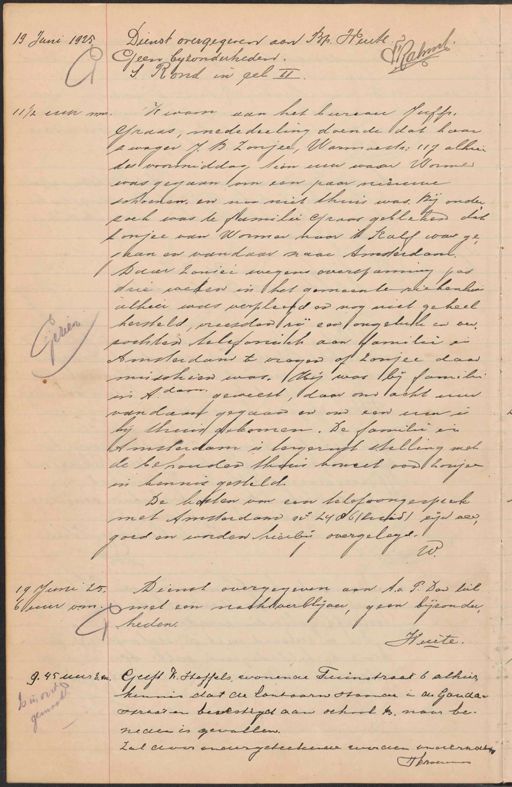 19 Juni 1925 Dienst overgegeven aan Bp. Heute.
Geen bijzonderheden.
1 Rond in cel II.
11½ uur nm. Kwam aan het bureau Juffr.
Graas, mededeeling doende dat haar
zwager J B Zonjee, Warmoestr. 117 alhier
des voormiddag tien uur naar Wormer
was gegaan om een paar nieuwe
schoenen en nu niet thuis was. Bij onder,
zoek was de familie Graas gebleken dat
Zonjee van Wormer naar Kalf was ge,
gaan en vandaar naar Amsterdam.
Daar Zonjee wegens overspanning pas
drie weken in het gemeente ziekenhuis
alhier was verpleegd en nog niet geheel
hersteld, vreesden zij een ongeluk en ver,
zochten telefonisch aan familie in
Amsterdam te vragen of Zonjee daar
misschien was. Hij was bij familie
in A'dam geweest, daar om acht uur
vandaan gegaan en om een uur is
hij thuis gekomen. De familie in
Amsterdam is tergerust stelling met
de thuis komst van Zonjee
in kennis gesteld.
De kosten van een telefoongesprek
met Amsterdam zijn
goed en worden hierbij overgelegd.
W.
Gezien
19 Juni 25. Dienst overgegeven aan A. P. Dou
6 uur vm. met een nachtverblijver, geen bijzonder,
heden.
Heute.
9.45 uur v.m. Geeft K. Stoffels, wonende Tuinstraat 6 alhier
kennis dat de lantaarn staande in de Gouda
straat bevestigd aan school naar be,
neden is gevallen.
Zal door ondergeteekende worden